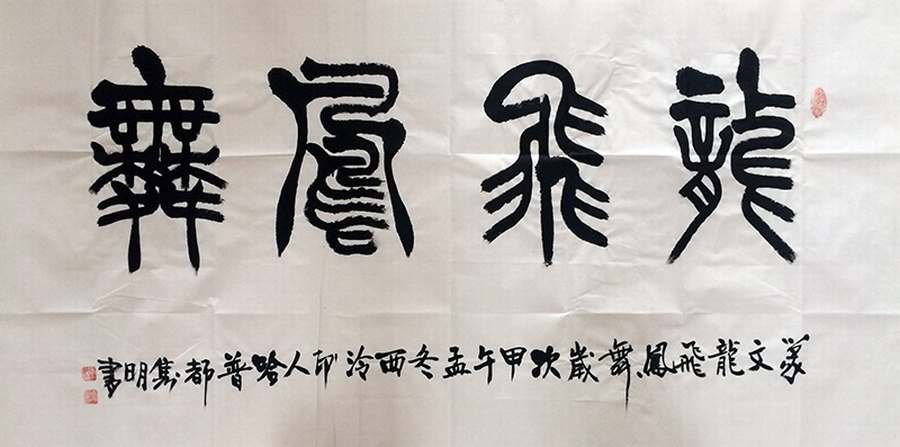 龍飛鳳舞
篆文龍飛鳳舞歲次甲午孟冬西泠印人哈普都雋明書